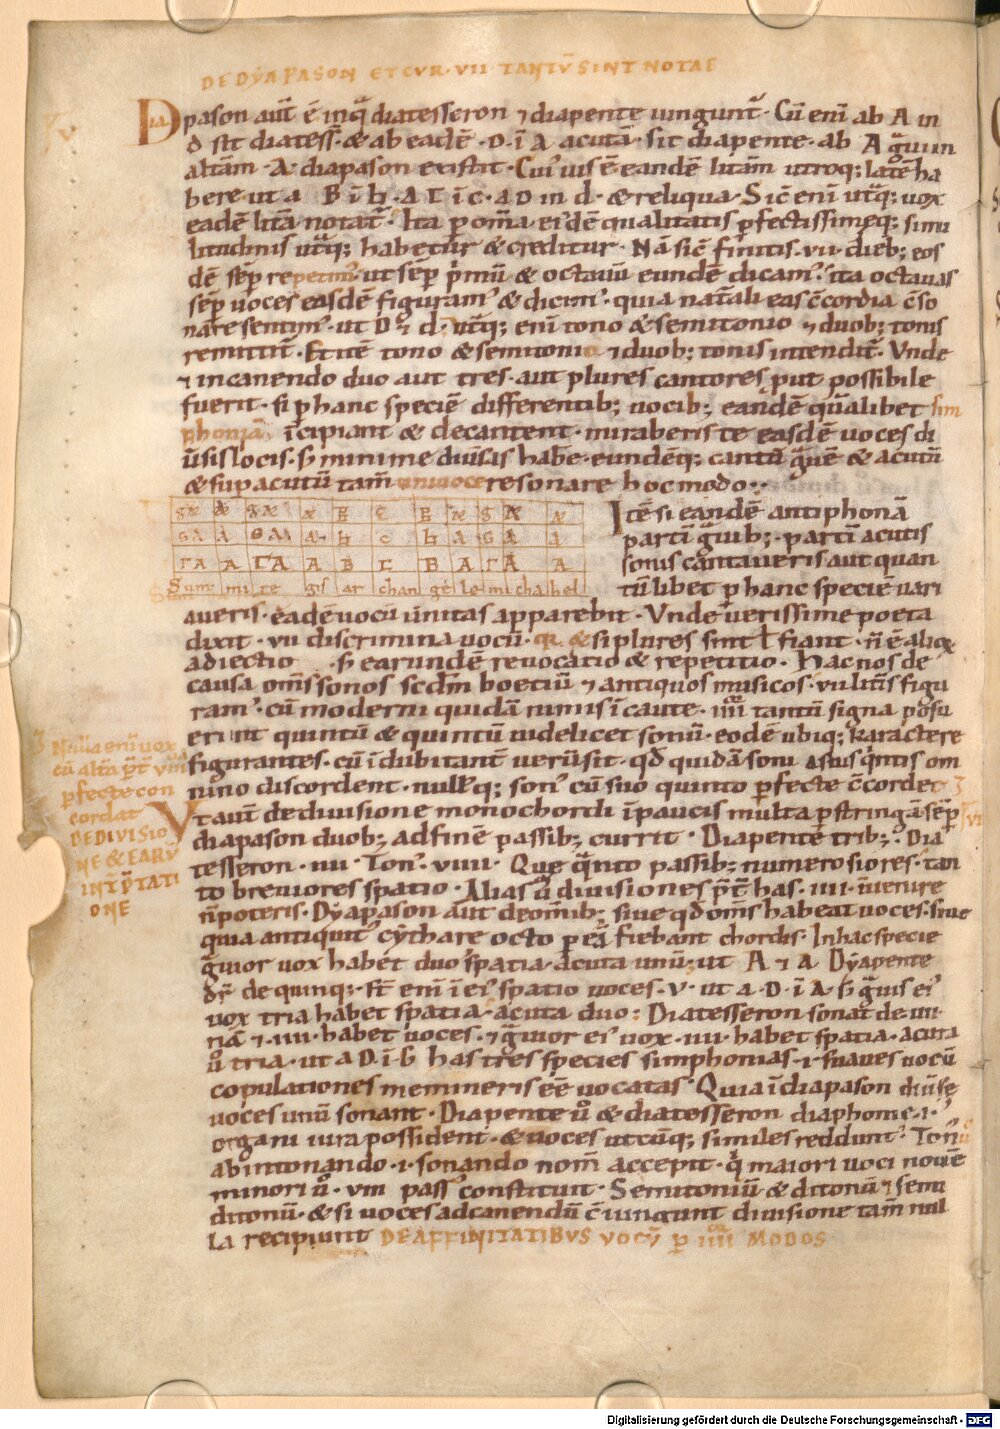 DE DYAPASON ET CVR VII TANTV̄ SINT NOTAE
Diapason aut̄ ē inq̄ diatesseron ⁊ diapente iungunt᷑. Cū eni ab A in
d sit diatess̄. & ab eadē. D. ī A acutā. sit diapente. ab A g̃ui in
altām. A. diapason existit. Cui᷒ uis ē eandē litām utroq; latē ha
bere. ut a B ī h. a Γ ī c. a D in d. & reliqua. Sic̄ eni ut̃q; uox
eadē litā notat᷑. Ita p om̄a ei᷒dē qualitatis pfectissimeq; simi
litudinis ut̃q; habetur & creditur. Nā sic̄ finitis. vii. dieb; eos
dē sēp repetim᷒. ut sēp p̄mū & octauū eundē dicam᷒. ita octauas
sēp uoces easdē figuram᷒ & dicim᷒. quia nat̄ali eas c̄cordia c̄so
nare sentim᷒. ut D ⁊ d. ut̃q; eni tono & semitonio ⁊ duob; tonis
remittit᷑. Et itē tono & semitonio ⁊ duob; tonis intendit᷑. Unde
⁊ in canendo duo aut tres. aut plures cantores put possibile
fuerit. si p hanc speciē differentib; uocib; eandē qualibet sim
phoniā īcipiant & decantent. miraberis te easdē uoces di
uersis locis. s; minime diuisas habe. eundēq; cantū g̃uē & acutū
& supacutū tam̄ univoce resonare hoc modo:.
Itē si eandē antiphonā
partī g̃uib;. partī acutis
sonis cantaueris aut quan
tū libet p hanc speciē uari
Sum mi te gis ar chan ge le mi cha hel
aueris. eadē uocū unitas apparebit. Unde uerissime poeta
dixit. vii discrimina uocū. qr & si plures sint ł fiant. n̄ ē aliq̄
adiectio s; earundē reuocatio & repetitio. Hac nos de
causa om̄s sonos scdm boetiū ⁊ antiquos musicos. vii litīs figu
ram᷒. cū moderni quidā nimis īcaute. iiii tantū signa posu
erint quintū & quintū uidelicet sonū. eodē ubiq; karactere
figurantes. cū īdubitant᷑ uerū sit. qd quidā soni a suis q̄ntis om
nino discordent. null᷒q; son᷒ cū suo quinto pfecte c̄cordet
Nulla eni uox
cū alta p̄t viiiā
pfecte con
cordat
DE DIVISIO
NE & EARŪ
INTPTATI
ONE
Ut aut̄ de diuisione monochordi īpaucis multa pstringā sēp
diapason duob; ad finē passib; currit. Diapente trib;. Dia
tesseron. iiii. Ton᷒. viiii. Que q̄nto passib; numerosiores. tan
to breuiores spatio. Alias u͛ diuisiones p̄t has. iiii. inuenire
n̄ poteris. Dyapason aut̄ de om̄ib; siue qd om̄s habeat uoces. siue
quia antiquit᷒ cythare octo p eā fiebant chordis. In hac specie
g̃uior uox habet duo spatia. acuta unū. ut A ⁊ a Dyapente
dr̄ de quinq;. st̄ eni ī ei᷒ spatio uoces. v. ut a D. ī A. s; g̃uis ei᷒
uox tria habet spatia. acuta duo: Diatesseron sonat de iiii.
nā ⁊ iiii. habet uoces. ⁊ g̃uior ei᷒ uox. iiii. habet spatia. acuta
u͛ tria. ut a D. ī G has tres species simphonias. i. suaues uocū
copulationes memineris eē uocatas. Quia ī diapason diuerse
uoces unū sonant. Diapente u͛ & diatesseron diaphonie. i.
organi iura possident. & uoces utcūq; similes reddunt. Ton᷒ u͛
ab intonando. i. sonando nom̄ accepit. q̄ maiori uoci nouē
minori u͛. viii pass᷒ constituit. Semitoniū & ditonū ⁊ semi
ditonū. & si uoces ad canendū c̄iungunt diuisione tam̄ nul
la recipiunt DE AFFINITATIBVS VOCV̄ p IIII MODOS
Digitalisierung gefördert durch die Deutsche Forschungsgemeinschaft - DFG